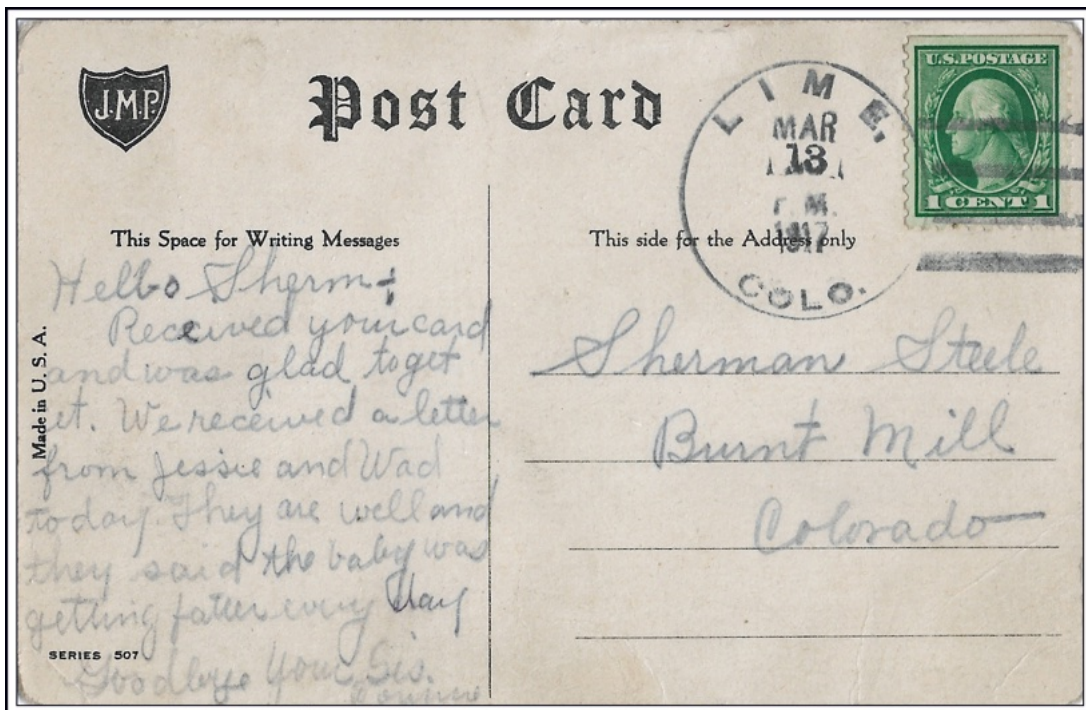 J.M.P.
Post Card
U.S. POSTAGE
1 CENT 1
LIME,
MAR
13
P. M.
1917
COLO.
This Space for Writing Messages
This side for the Address only
Made in U. S. A.
Hello Sherm;
Received your card
and was glad to get
it. We received a letter
from Jessie and Wad
today. They are well and
they said the baby was
getting fatter every day
Goodbye Your Sis.
SERIES 507
Sherman Steele
Burnt Mill
Colorado